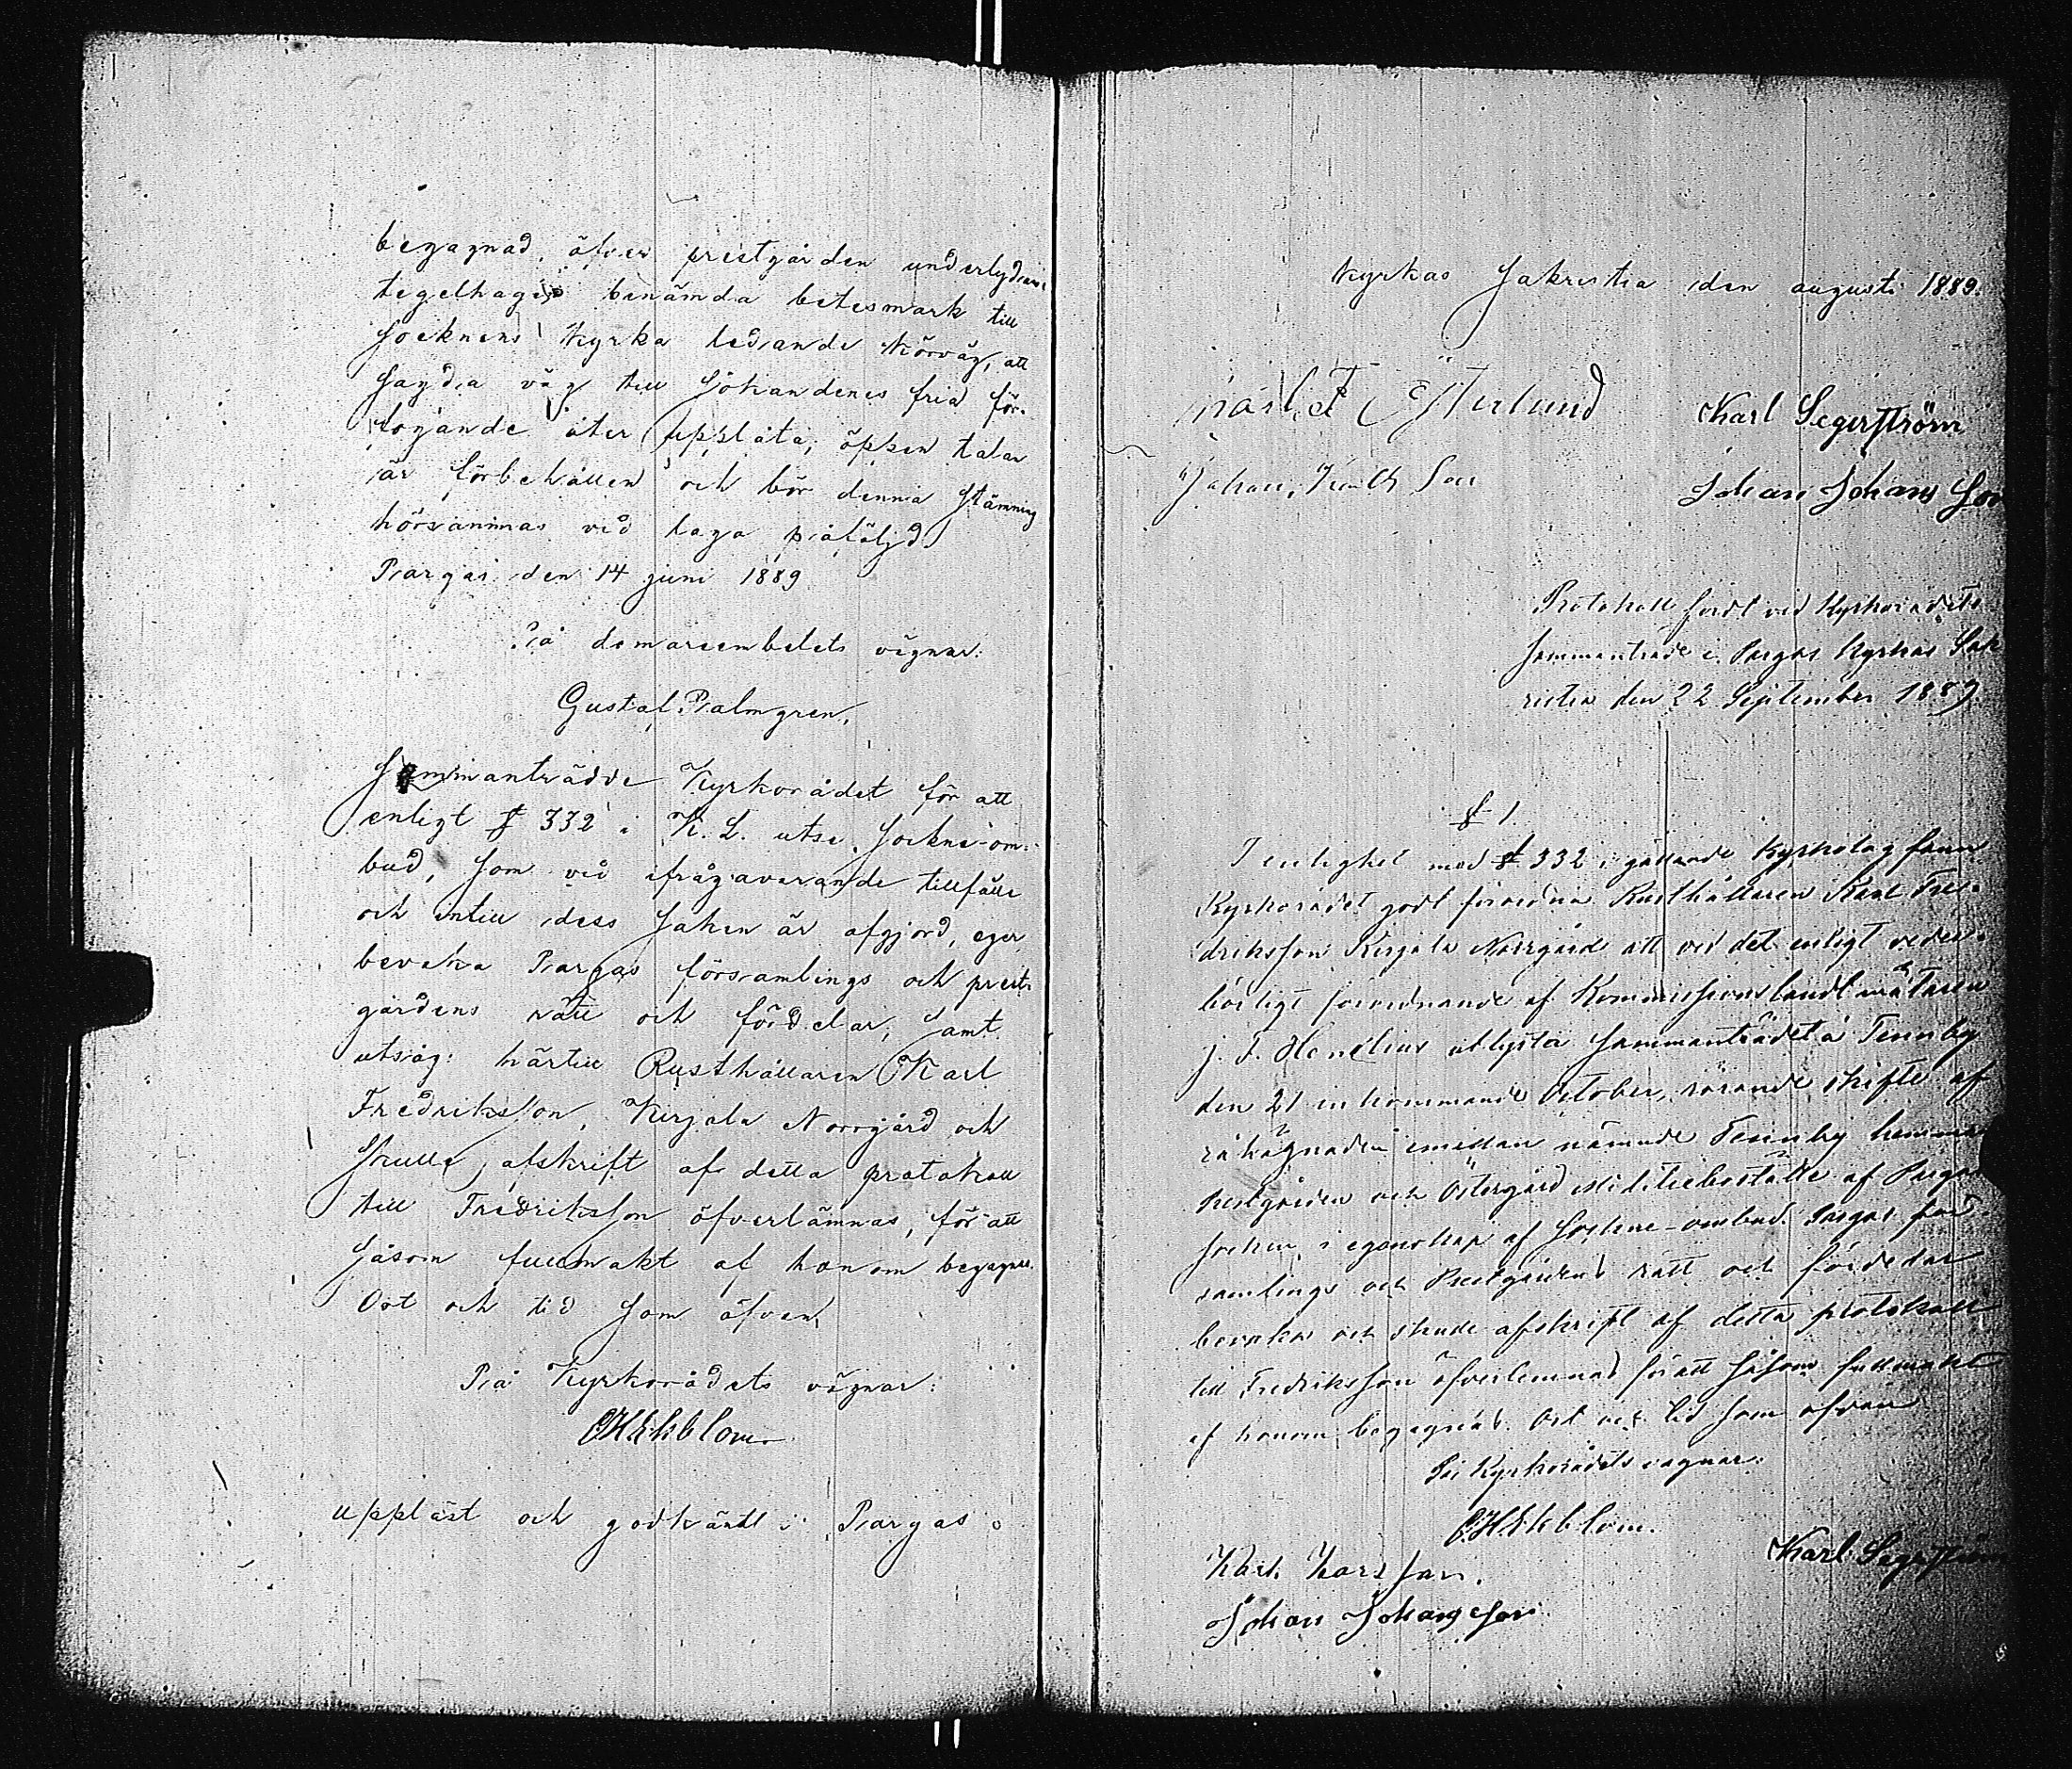 begagnad, öfver prestgården underlydande
tegelhagen benämda betesmark till
Socknens Kyrka ledande Körväg, att
Sagda väg till Sökandenes fria för-
fogande åter upplåta; öppen talan
är förbehållen och bör denna Stämning
hörsammas vid laga påföljd.
Pargas den 14 juni 1889
På domareembetets vägnar:
Gustaf Palmgren.
Sammanträdde Kyrkorådet för att
enligt § 332 i K. L. utse Sockne-om-
bud, Som vid ifrågavarande tillfälle
och intill dess Saken är afgjord, eger
bevaka Pargas församlings och prest-
gårdens rätt och fördelar, Samt
utsåg härtill Rusthållaren Karl
Fredriksson, Kirjala Norrgård och
Skulle afskrift af detta protokoll
till Fredriksson öfverlämnas, för att
Såsom fullmakt af honom begagnas.
Ort och tid Som öfvan,
På Kyrkorådets vägnar:
Ekblom
uppläst och godkändt i Pargas
Kyrkas Sakristia den augusti 1889.
Karl F Österlund Karl Segerström
Johan Johans Son
Protokoll fördt vid Kyrkorådets
Sammanträde i Pargas Kyrkas Sak
ristia den 22 September 1889.
§ 1
I enlighet med § 332 i gällande Kyrkolag fann
Kyrkorådet godt förordna Rusthållaren Karl Fre-
driksson Kirjala Norrgård att vid det enligt veder-
börligt förordnande af Kommissionslandtmätaren
J. F. Henelius utlysta Sammanträdet å Tennby
den 21 inkommande October, rörande skifte af
råhägnaden emellan nämnde Tennby hemman
Prestgården och Östergård Militieboställe af Pargas
Socken, i egenskap af Sockne-ombud Pargas för-
samlings och Prestgårdens rätt och fördelar
bevaka och skulle afskrift af detta protokoll
till Fredriksson öfverlemnas för att Såsom fullmakt
af honom begagnas. Ort och tid Som ofvan
På Kyrkorådets vägnar:
Ekblom.
Karl Karlsson. Karl Segerström
Johan Johansson